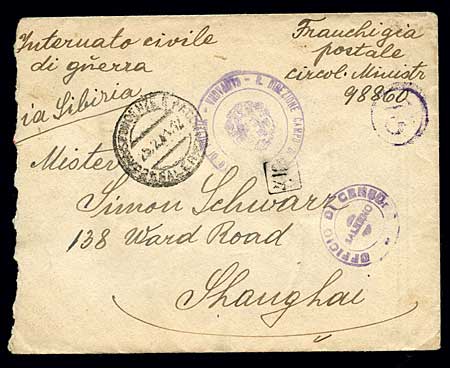 Internato civile
di guerra
via Sibiria
Franchigia
postale
circol. Ministr
98860
Mister
Simon Schwarz
138 Ward Road
Shanghai
R. DIREZIONE CAMPO
UFFICIO DI CENSU
SALERNO
15